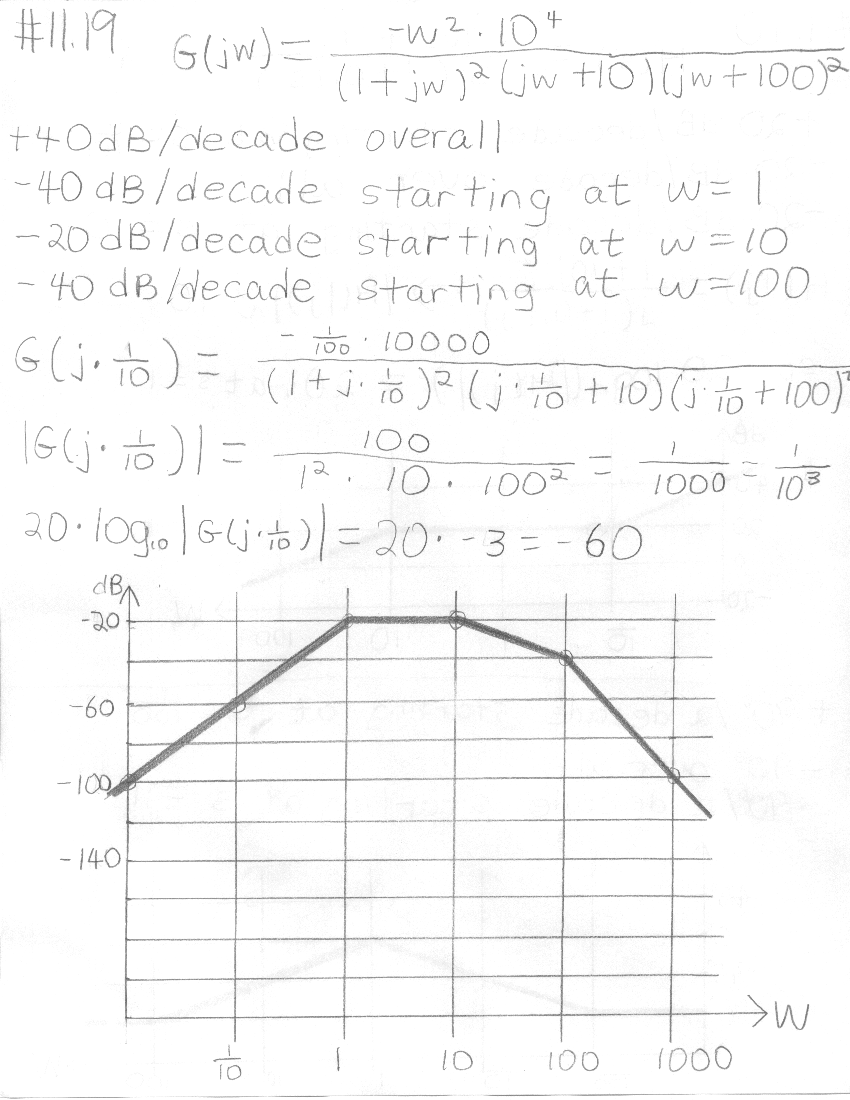 #11.19 G(jw) = -w² · 10⁴ / (1+jw)² (jw+10)(jw+100)²
+40dB/decade overall
-40 dB/decade starting at w=1
-20dB/decade starting at w=10
-40 dB/decade starting at w=100
G(j·1/10) = -1/100 · 10000 / (1+j·1/10)² (j·1/10+10)(j·1/10+100)²
|G(j·1/10)| = 100 / 1² · 10 · 100² = 1/1000 = 1/10³
20·log₁₀|G(j·1/10)| = 20·-3 = -60
dB
-20
-60
-100
-140
W
1/10 1 10 100 1000